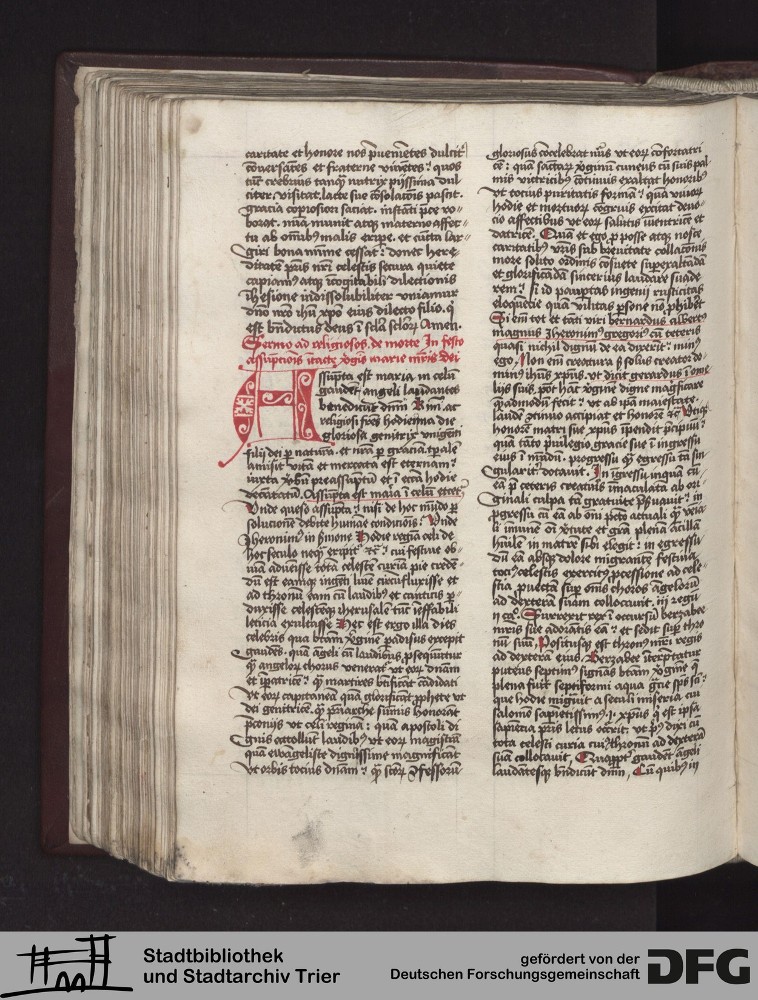 caritate et honore nos p̄uenie̅tes dulcit
co̅uersa̅tes et fraterne viue̅tes : quos
tu̅c crebrius tanq̄ nutrix pijssima dul
citer visitat. lacte sue co̅solac̄ois pascit
gracia copiosiori saciat.
borat. atq materno affec
tu ab om̅ibꝫ malis eripe. et cu̅cta lar
giri bona mi̅ime cessat : donec here
ditate p̄ris nr̄i celestis secura quiete
capiam atq i̅cogitabili dilectionis
ihesione indissolubiliter vniamur
dn̄o nr̄o ih̄u xp̄o eius dilecto filio. q̄
est bn̄dictus deus i̅ sc̄la sc̄lor Amen.
Sermo ad religiosos de morte In festo
assu̅ptionis v̄gis marie mr̄is dei
Assu̅pta est maria in celu̅
gaude̅t angeli laudantes
benedicu̅t dn̄m
religiosi fr̄es hodierna die
gloriosa genitrix vnigeniti
filij dei p̄ natura. et nr̄a p̄ gracia. tp̄ale̅
amisit vita̅ et mercata est eternam :
iuxta preassu̅ptu̅ et i̅ ecc̄a hodie
decantatu̅. Assu̅pta est maria i̅ celu̅ etcet
Vnde queso assu̅pta : nisi de hoc mu̅do p̄
solucione̅ debite hu̅ane condic̄ois : Vnde
Jheronimꝰ in s̄mone Hodie regia celi de
hoc seculo neq cui festiue ob
uia̅ aduenisse tota̅ celeste̅ curia̅ pie crede̅
du̅ est eamqꝫ inge̅ti lumi̅e circu̅fluxisse et
ad thronu̅ eam cu̅ laudibꝰ et canticis p̄
duxisse celestemqꝫ iherusale̅ tu̅c i̅effabili
leticia exultasse Hec est ergo illa dies
celebris qua bt̄am v̄gine̅ padisus excepit
gaude̅s. qua̅ a̅geli cu̅ laudibus p̄sequu̅tur
q̄ angelor chorus venerat vt eor dn̄am
et ip̄atrice̅ : q̄ martires bt̄ificat ca̅didati
vt eor capitanea̅ qua̅ glorifica̅t p̄phete vt
dei genitrice̅. q̄ p̄riarche su̅mis honora̅t
p̄conijs vt celi regina̅ : qua̅ apostoli di
gnis attollu̅t laudibꝰ vt eor magistra̅
qua̅ ewa̅geliste dignissime magnifica̅t
vt orbis tocius dn̄am : q̄ sc̄or c̄fessoru̅
gloriosus co̅celebrat nu̅s vt eor co̅fortatri
ce̅ : qua̅ sacrar v̄ginu̅ cuneus cu̅ suis pal
mis victricibꝰ co̅tinuis exaltat honoribꝰ
vt tocius puritatis forma̅ : qua̅ viuor
hodie et mortuor co̅gruis excitat deuo
cio affectibus vt eor salutis i̅uentrice̅ et
datrice̅. Qua̅ et ego p̄ posse atqꝫ nosce
caritatibꝰ vr̄is sub breuitate collac̄ois
more solito ordinis co̅suete sup̄exaltada̅
et glorificada̅ sincerius laudare suade
rem : si id paup̄tas ingenij rusticitas
eloquencie qua̅ vilitas p̄sone no̅ p̄hibet
Si eni̅ tot et tanti viri bernardus albertꝰ
magnus Jheronimꝰ gregoriꝰ cu̅ ceteris
quasi nichil dignu̅ de ea dixerit : minꝰ
ego. Non eni̅ creatura s̄ solus creator do
minꝰ ih̄us xp̄us. vt dicit gerardus i̅ ome
lijs suis. pōt ha̅c v̄gine̅ digne magficare
q̄admodu̅ fecit : vt ab ip̄a maiestate
laude̅ accipiat et honore̅
honore̅ matri sue xp̄us i̅pendit p̄cipuu̅ :
qua̅ ta̅to p̄uilegio gracie sue i̅ ingressu
eius i̅ mu̅du̅. progressu q̄ egressu ta̅ sin
gularit̄ dotauit. In ingressu inqua̅ cu̅
ea̅ p̄ ceteris creatu̅is i̅maculata̅ ab ori
ginali culpa ta̅ gratuite p̄s̄uauit : in
p̄gressu cu̅ ea̅ ab om̅i pc̄to actuali
li i̅mune̅ oi̅ v̄tute et gr̄a plena̅ a̅cilla̅
hu̅ile̅ in matre̅ sibi elegit : in egressu
du̅ ea̅ absqꝫ dolore migrante̅ festiua
tociꝰ celestis exercitꝰ p̄cessione ad cele
stia p̄uecta̅ sup̄ om̅s choros a̅geloru̅
ad dextera̅ suam collocauit. iij regu̅
ij ca̅. Surrexit rex i̅ occursu̅ bersabee
mr̄is sue adoratis ea̅ : et sedit sup̄ thro
nu̅ suu̅. Positusqꝫ est thronꝰ mr̄i regis
ad dextera̅ eius. Bersabee i̅terp̄tatur
puteus septimꝰ signa̅s bt̄am v̄gine̅ q̄
plena fuit septiformi aqua gr̄ie sp̄s sc̄i :
que hodie migrauit a seculi miseria cui
salomo̅ sapie̅tissimꝰ .i. xp̄us q̄ est ipsa
sapie̅cia p̄ris letus occ̄rit : vt p̄ꝰ dixi cu̅
tota celesti curia cuiꝰ thronu̅ ad dextera̅
sua̅ collocauit. gaude̅t a̅geli
lauda̅tesqꝫ bn̄dicu̅t dn̄m. Cu̅ quibꝰ in
Stadtbibliothek
und Stadtarchiv Trier
gefördert von der
Deutschen Forschungsgemeinschaft
DFG